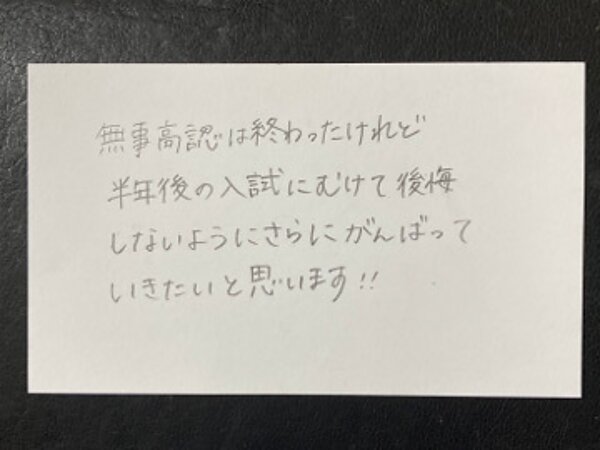 無事高認は終わったけれど
半年後の入試にむけて後悔
しないようにさらにがんばって
いきたいと思います!!